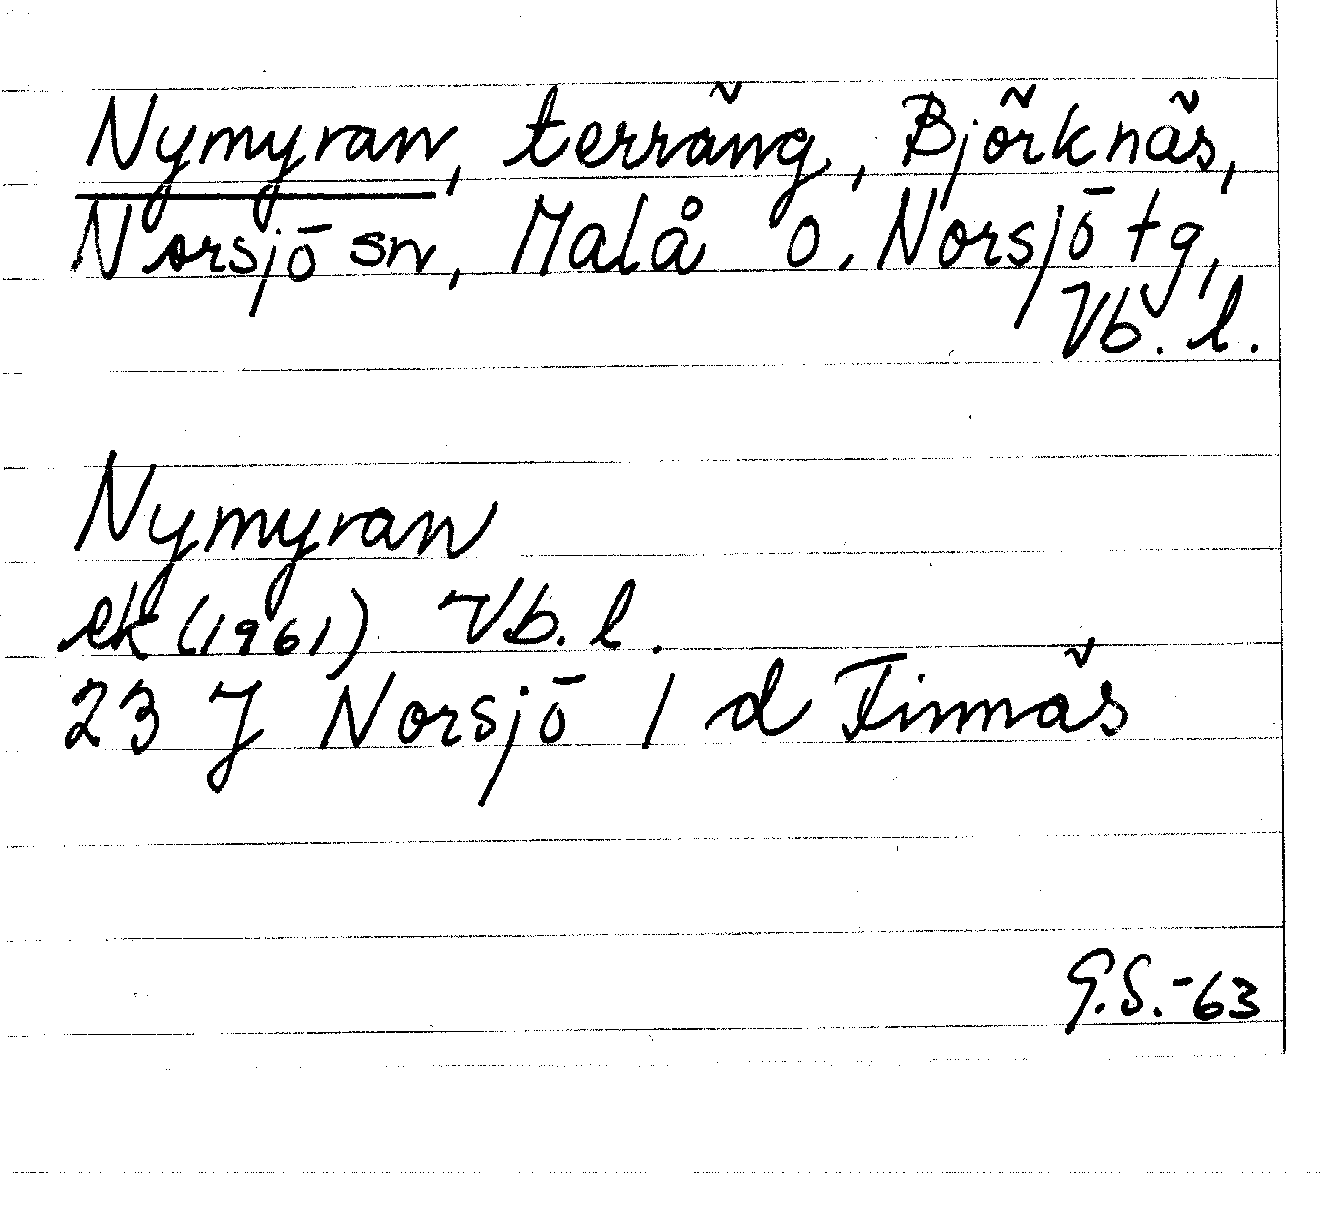 Nymyran, terräng, Björknäs,
Norsjö sn, Malå o. Norsjö tg,
Vb. l.
Nymyran
ek (1961) Vb. l.
23 J Norsjö 1 d Finnäs
G.S. -63